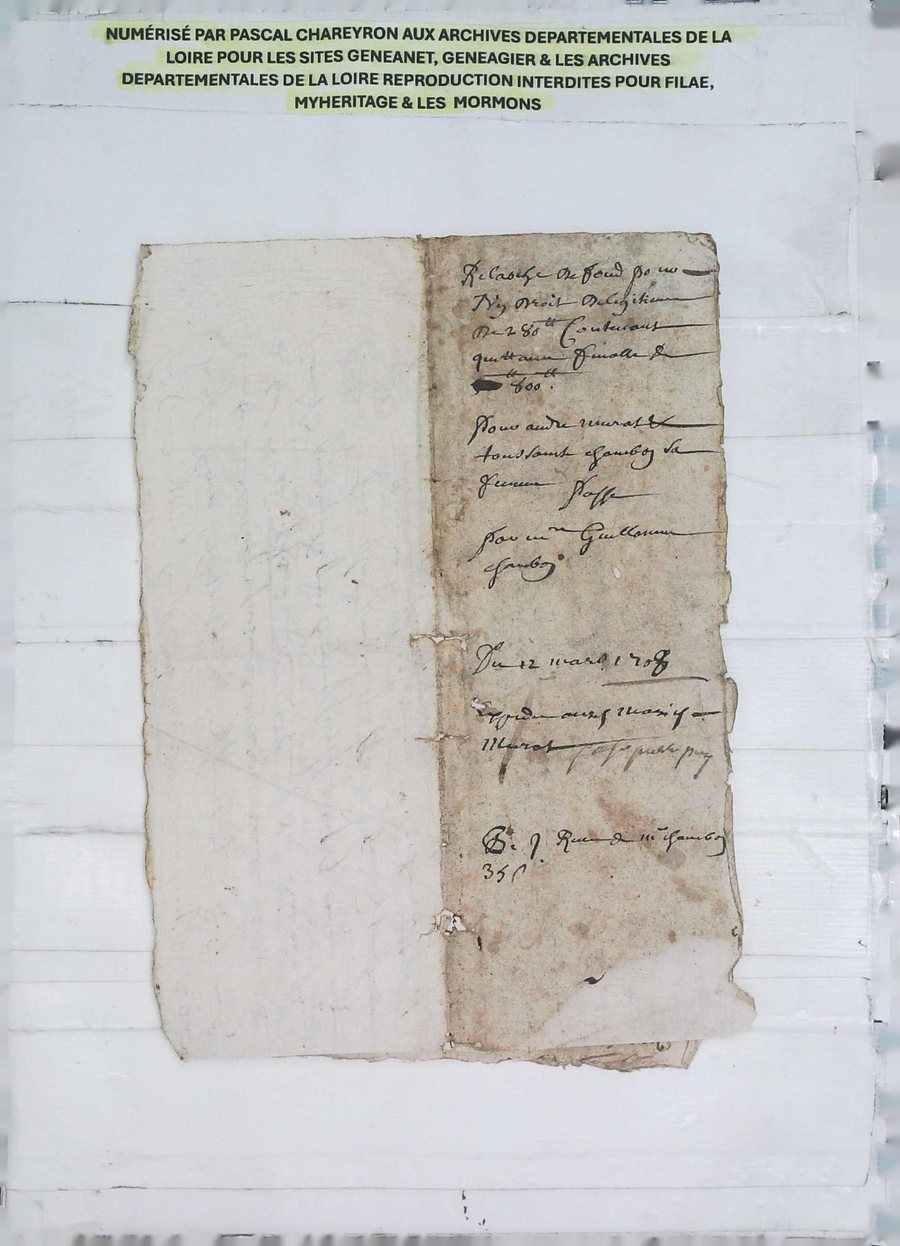 NUMÉRISÉ PAR PASCAL CHAREYRON AUX ARCHIVES DEPARTEMENTALES DE LA
LOIRE POUR LES SITES GENEANET, GENEAGIER & LES ARCHIVES
DEPARTEMENTALES DE LA LOIRE REPRODUCTION INTERDITES POUR FILAE,
MYHERITAGE & LES MORMONS
Relasche de fond pour
droit de legitime
de 280ᵗᵗ Contenant
quittance finalle de
600ᵗᵗ.
Pour andre murat &
toussainte chambon sa
femme Passe
Par mᵉ Guillaume
chambon
Du 12 mars 1708
Murat
de mᵉ chambon